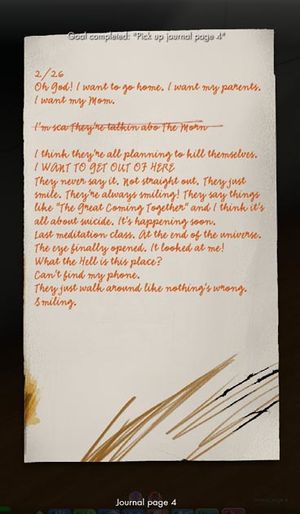 Goal completed: "Pick up journal page 4"
2/26
Oh God! I want to go home. I want my parents.
I want my Mom.
I'm sca They're talkin abo The Morn
I think they're all planning to kill themselves.
I WANT TO GET OUT OF HERE
They never say it. Not straight out. They just
smile. They're always smiling! They say things
like "The Great Coming Together" and I think it's
all about suicide. It's happening soon.
Last meditation class. At the end of the universe.
The eye finally opened. It looked at me!
What the Hell is this place?
Can't find my phone.
They just walk around like nothing's wrong.
Smiling.
Journal page 4